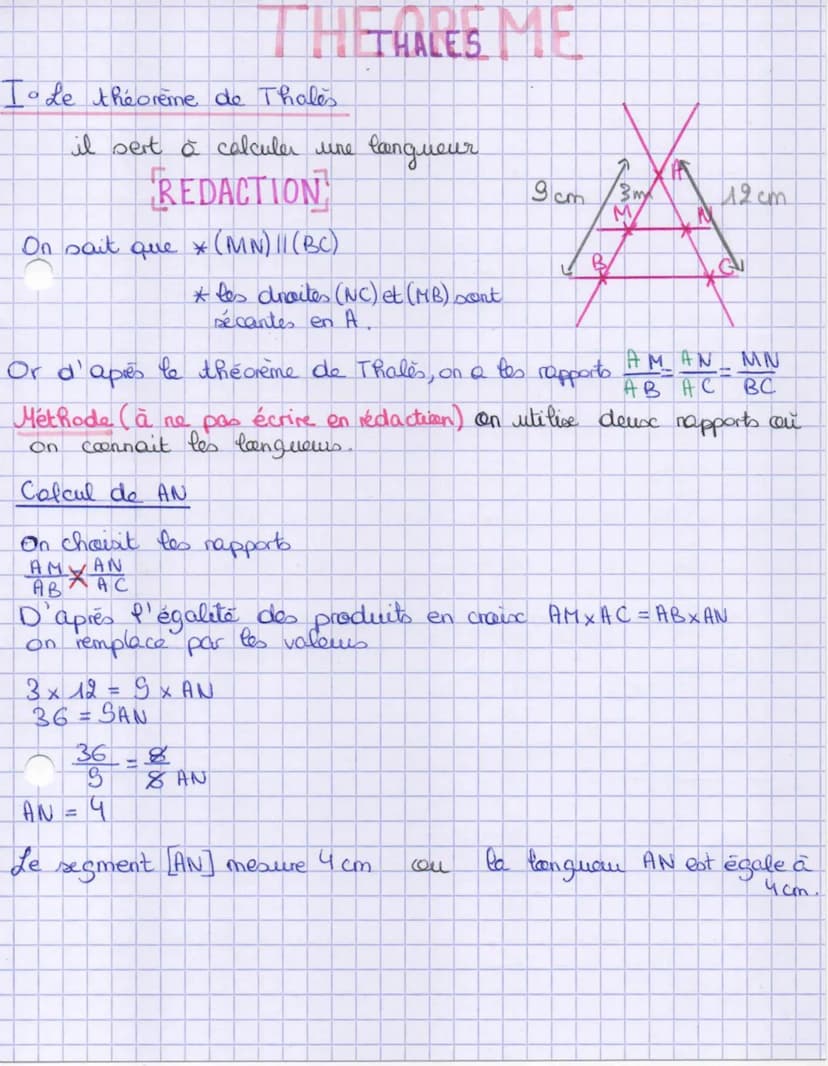 THEOREME
THALES
I° Le théorème de Thalès
il sert à calculer une longueur
[REDACTION]
9 cm
3m
12 cm
A
M
N
B
C
On sait que * (MN) || (BC)
* les droites (NC) et (MB) sont
sécantes en A.
Or d'après le théorème de Thalès, on a les rapports AM/AB = AN/AC = MN/BC
Méthode (à ne pas écrire en rédaction) on utilise deux rapports où
on connait les longueurs.
Calcul de AN
On choisit les rapports
AM/AB × AN/AC
D'après l'égalité des produits en croix AM × AC = AB × AN
on remplace par les valeurs
3 × 12 = 9 × AN
36 = 9AN
36/9 = 8/8 AN
AN = 4
Le segment [AN] mesure 4 cm ou la longueur AN est égale à
4 cm.